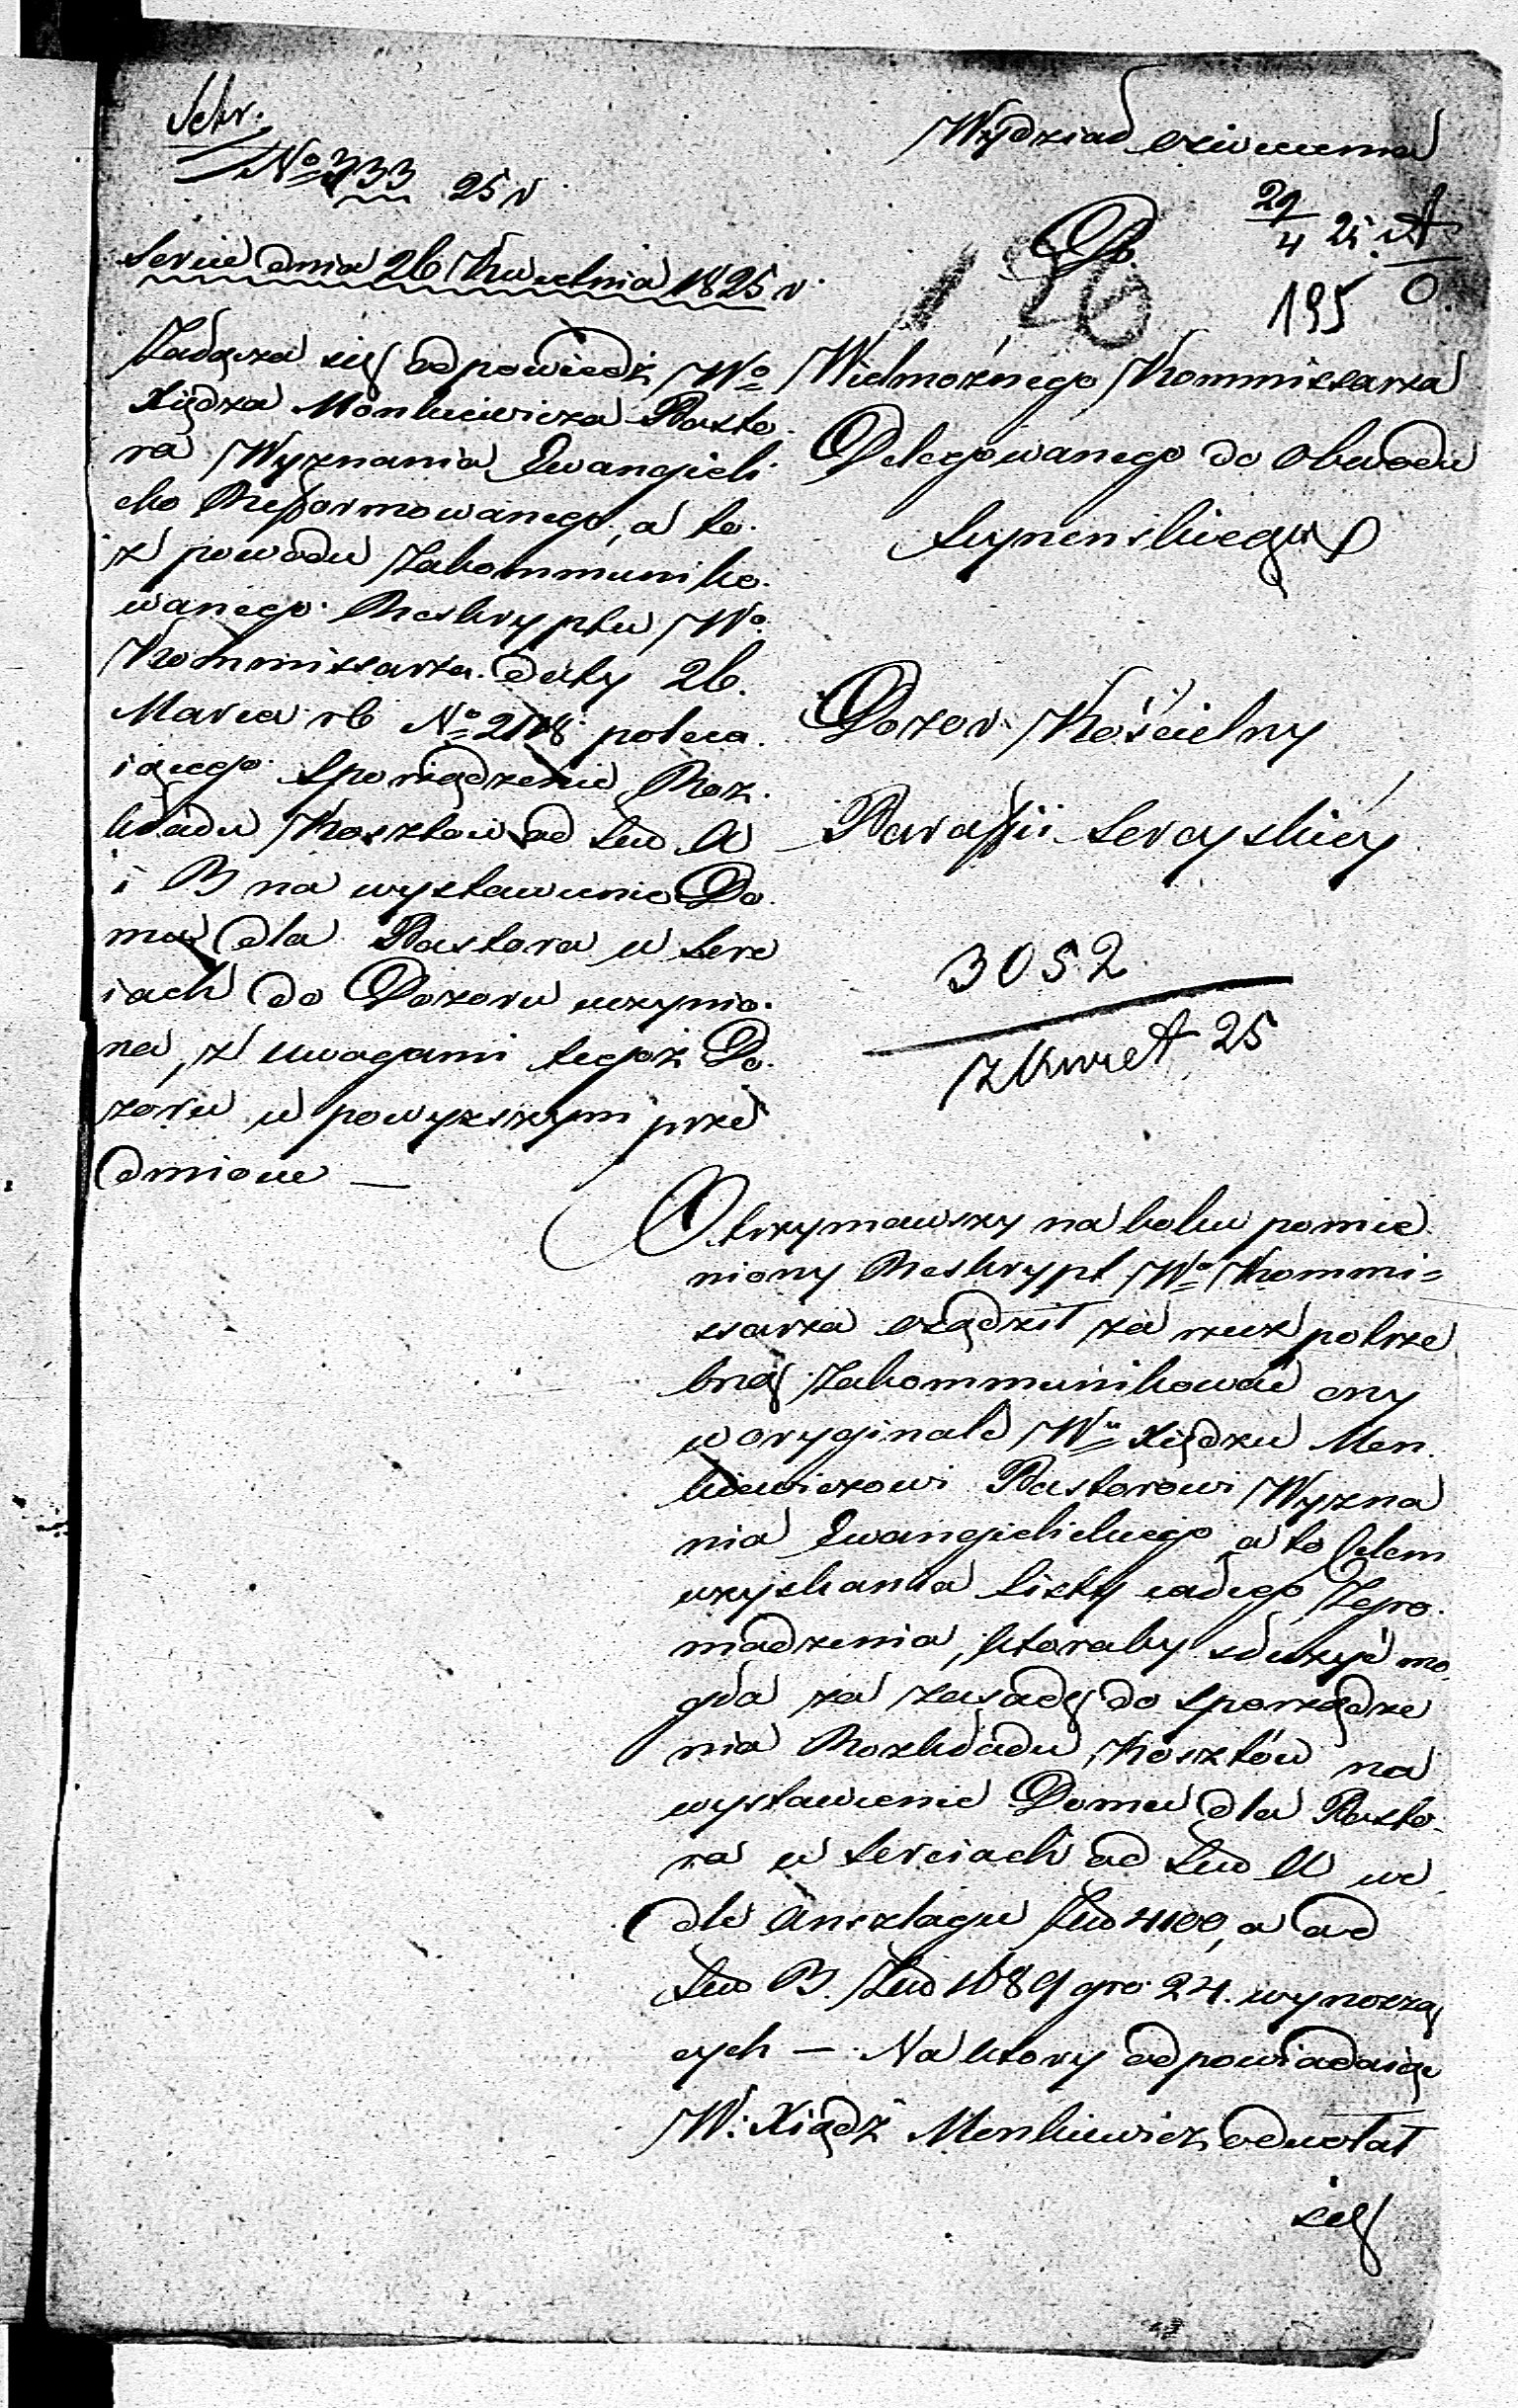 Sekr.
No 333 25 r
Sereie dnia 26 Kwietnia 1825 r.
Załącza się odpowiedź Wo
Xiędza Monkiewicza Pasto-
ra Wyznania Ewangieli
cko Reformowanego, a to
z powodu Zakommuniko-
wanego Reskryptu Wo
Kommissarza daty 26.
Marca rb No 2118 poleca-
iącego sporządzenie Roz-
kładu Kosztów ad Lud A
i B na wystawienie Do-
mu dla Pastora w Sere
iach do Dozoru uczynio-
na, z uwagami tegoż Do-
zoru w powyższym prze
dmiocie —
Wydział
29/4 25.
195
126
Do
Wielmożnego Kommissarza
Delegowanego do Obwodu
Seynenskiego
Dozor Kościelny
Parafii Sereyskiey
3052
z Kwiet 25
Otrzymawszy na boku pomie
niony Reskrypt Wo Kommi=
ssarza osądził za rzecz potrze
bną Zakommunikować ony
w oryginale Wu Xiędzu Mon
kiewiczowi Pastorowi Wyzna
nia Ewangielickiego a to celem
uzyskania Listy całego Zgro-
madzenia, ktoraby służyć mo
gła za zasadę do sporządze
nia Rozkładu Kosztów na
wystawienie Domu dla Pasto-
ra w Sereiach ad Lud A we
dle Anszlagu 4100, a ad
Lud B. 1689 gro 24. wynoszą
cych — Na ktory odpowiadaiąc
W. Xiądz Monkiewicz odwołał
się